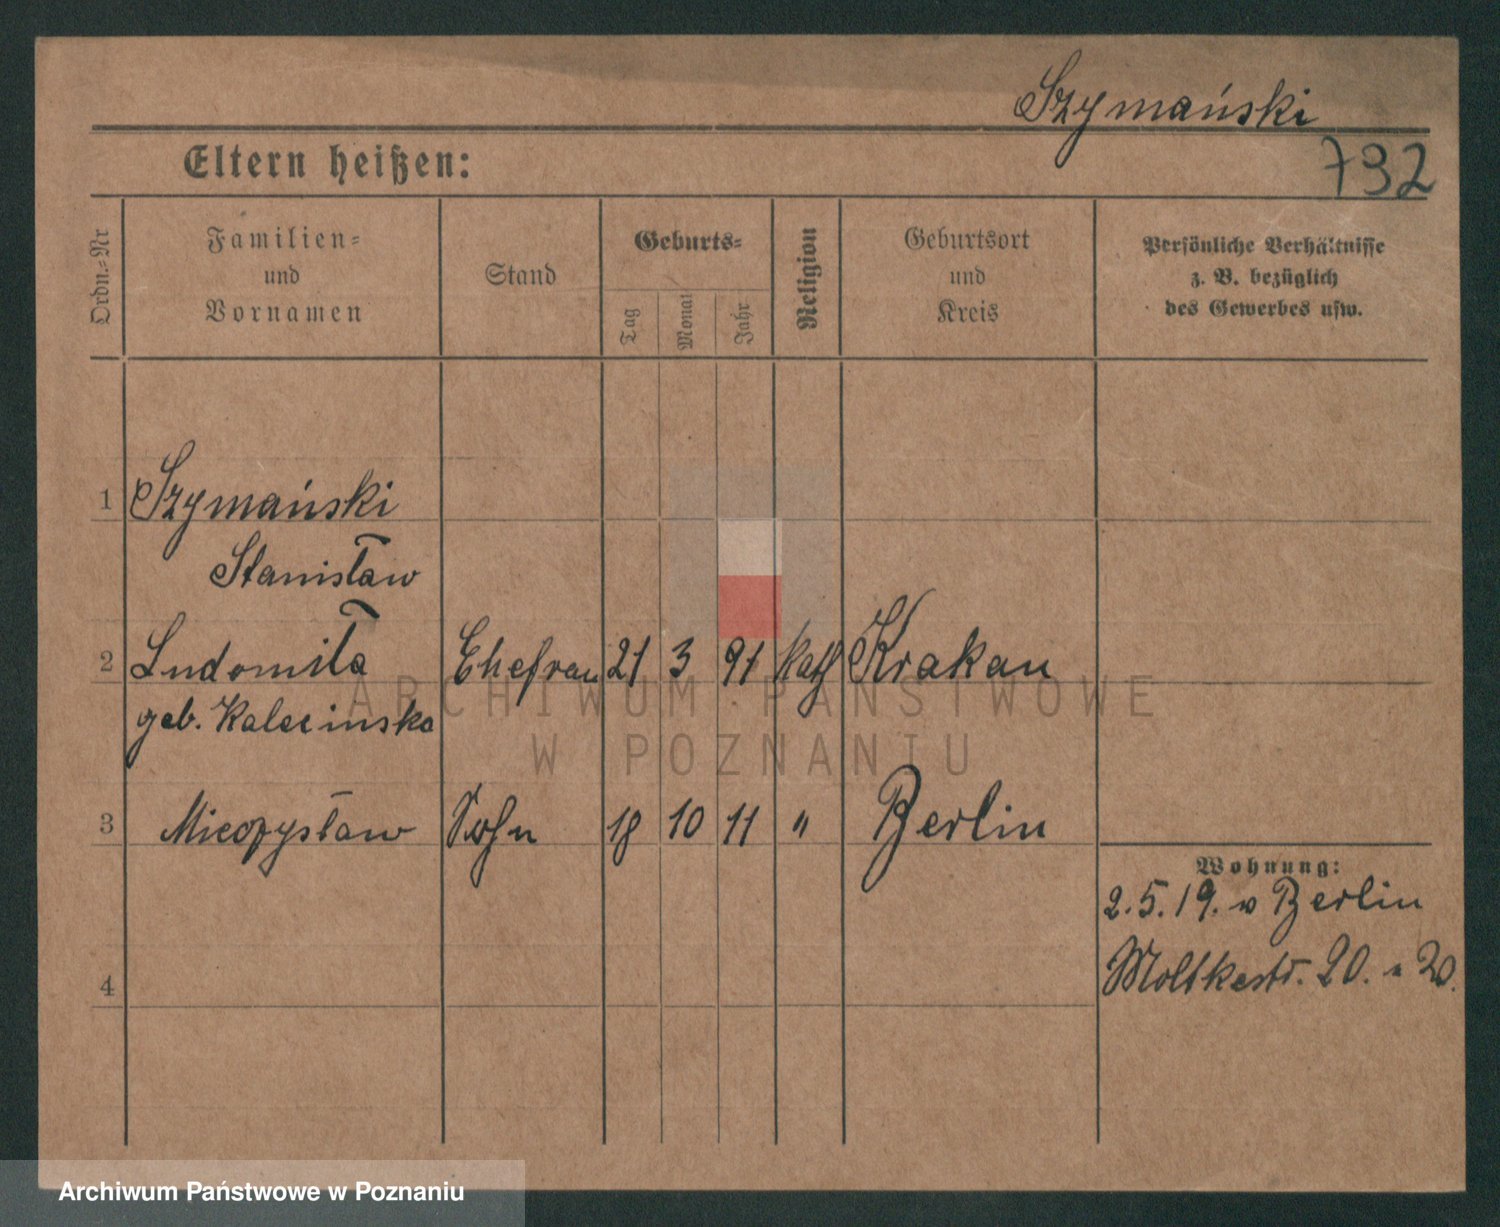 Szymański
732
Eltern heißen:
Ordn.-Nr
Familien-
und
Vornamen
Stand
Geburts-
Tag
Monat
Jahr
Religion
Geburtsort
und
Kreis
Persönliche Verhältnisse
z. B. bezüglich
des Gewerbes usw.
1 Szymański
Stanisław
2 Ludomiła Ehefrau 21 3 91 kath Krakau
geb. Kalecinska
3 Mieczysław Sohn 18 10 11 " Berlin
Wohnung:
2.5.19. v Berlin
Moltkestr. 20.
4
ARCHIWUM PAŃSTWOWE
W POZNANIU
Archiwum Państwowe w Poznaniu